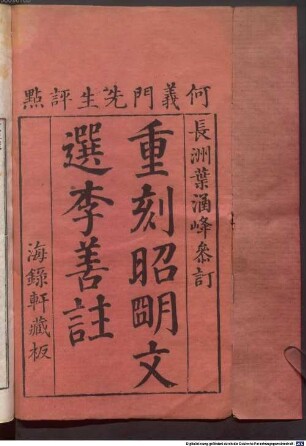 何義門先生評點
長洲葉涵峰叅訂
重刻昭明文
選李善註
海錄軒藏板